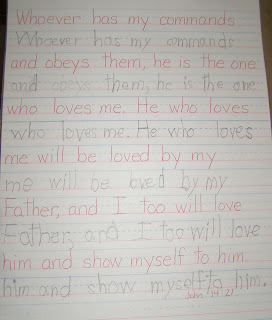 Whoever has my commands
Whoever has my ommands
and obeys them, he is the one
and obeys them, he is the one
who loves me. He who loves
who loves me. He who loves
me will be loved by my
me will be loved by my
Father, and I too will love
Father, and I too will love
him and show myself to him
him and show myself to him.
John 14:21